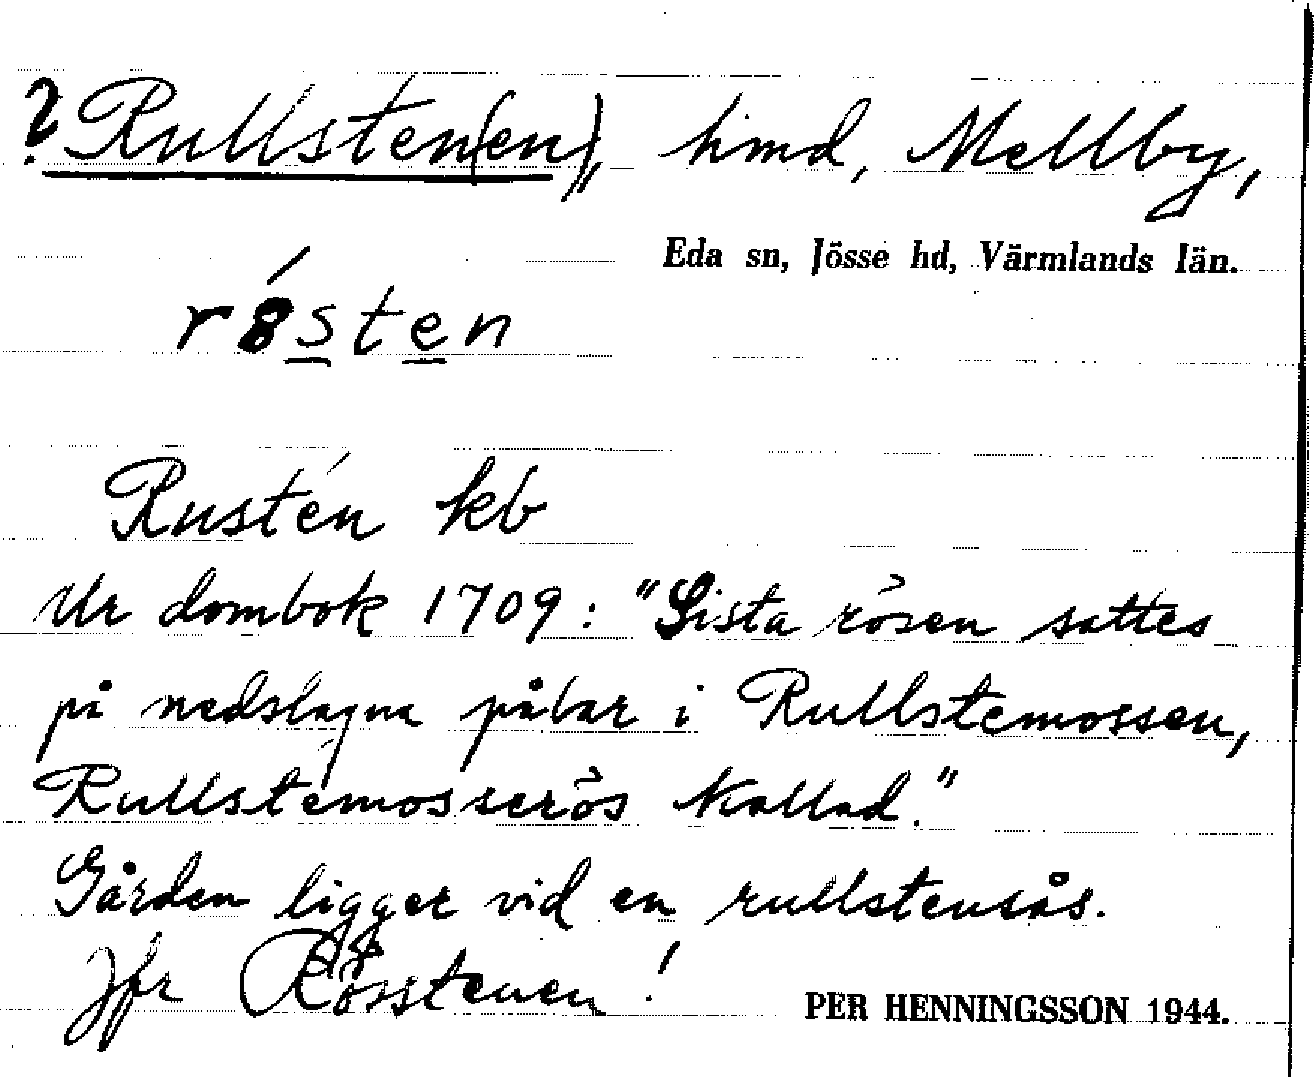 ? Rullsten(en), hmd, Mellby,
Eda sn, Jösse hd, Värmlands län.
rósten
Rustén kb
Ur dombok 1709: "Sista rösen sattes
på nedslagna pålar i Rullstemossen,
Rullstemosserös kallad."
Gården ligger vid en rullstensås.
Jfr Rösstenen!
PER HENNINGSSON 1944.